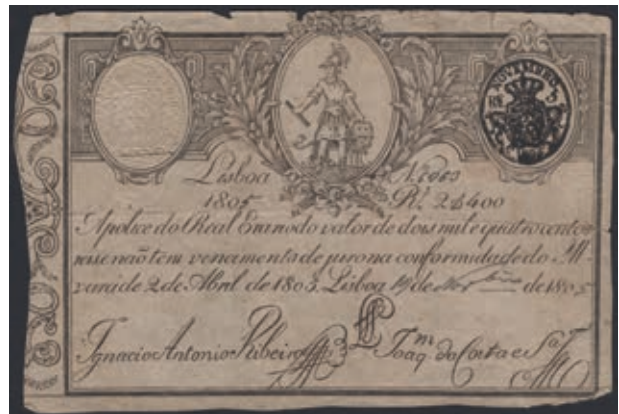 NOVEMBRO
Lisboa N.
1805 R.ˢ 2$400
Apolice do Real Erario do valor de dois mil e quatrocentos
reis e não tem vencimento de juro na conformidade do Al-
vará de 2 de Abril de 1805. Lisboa 19 de Nov.bro de 1805
Ignacio Antonio Ribeiro Joaq.m da Costa e S.a